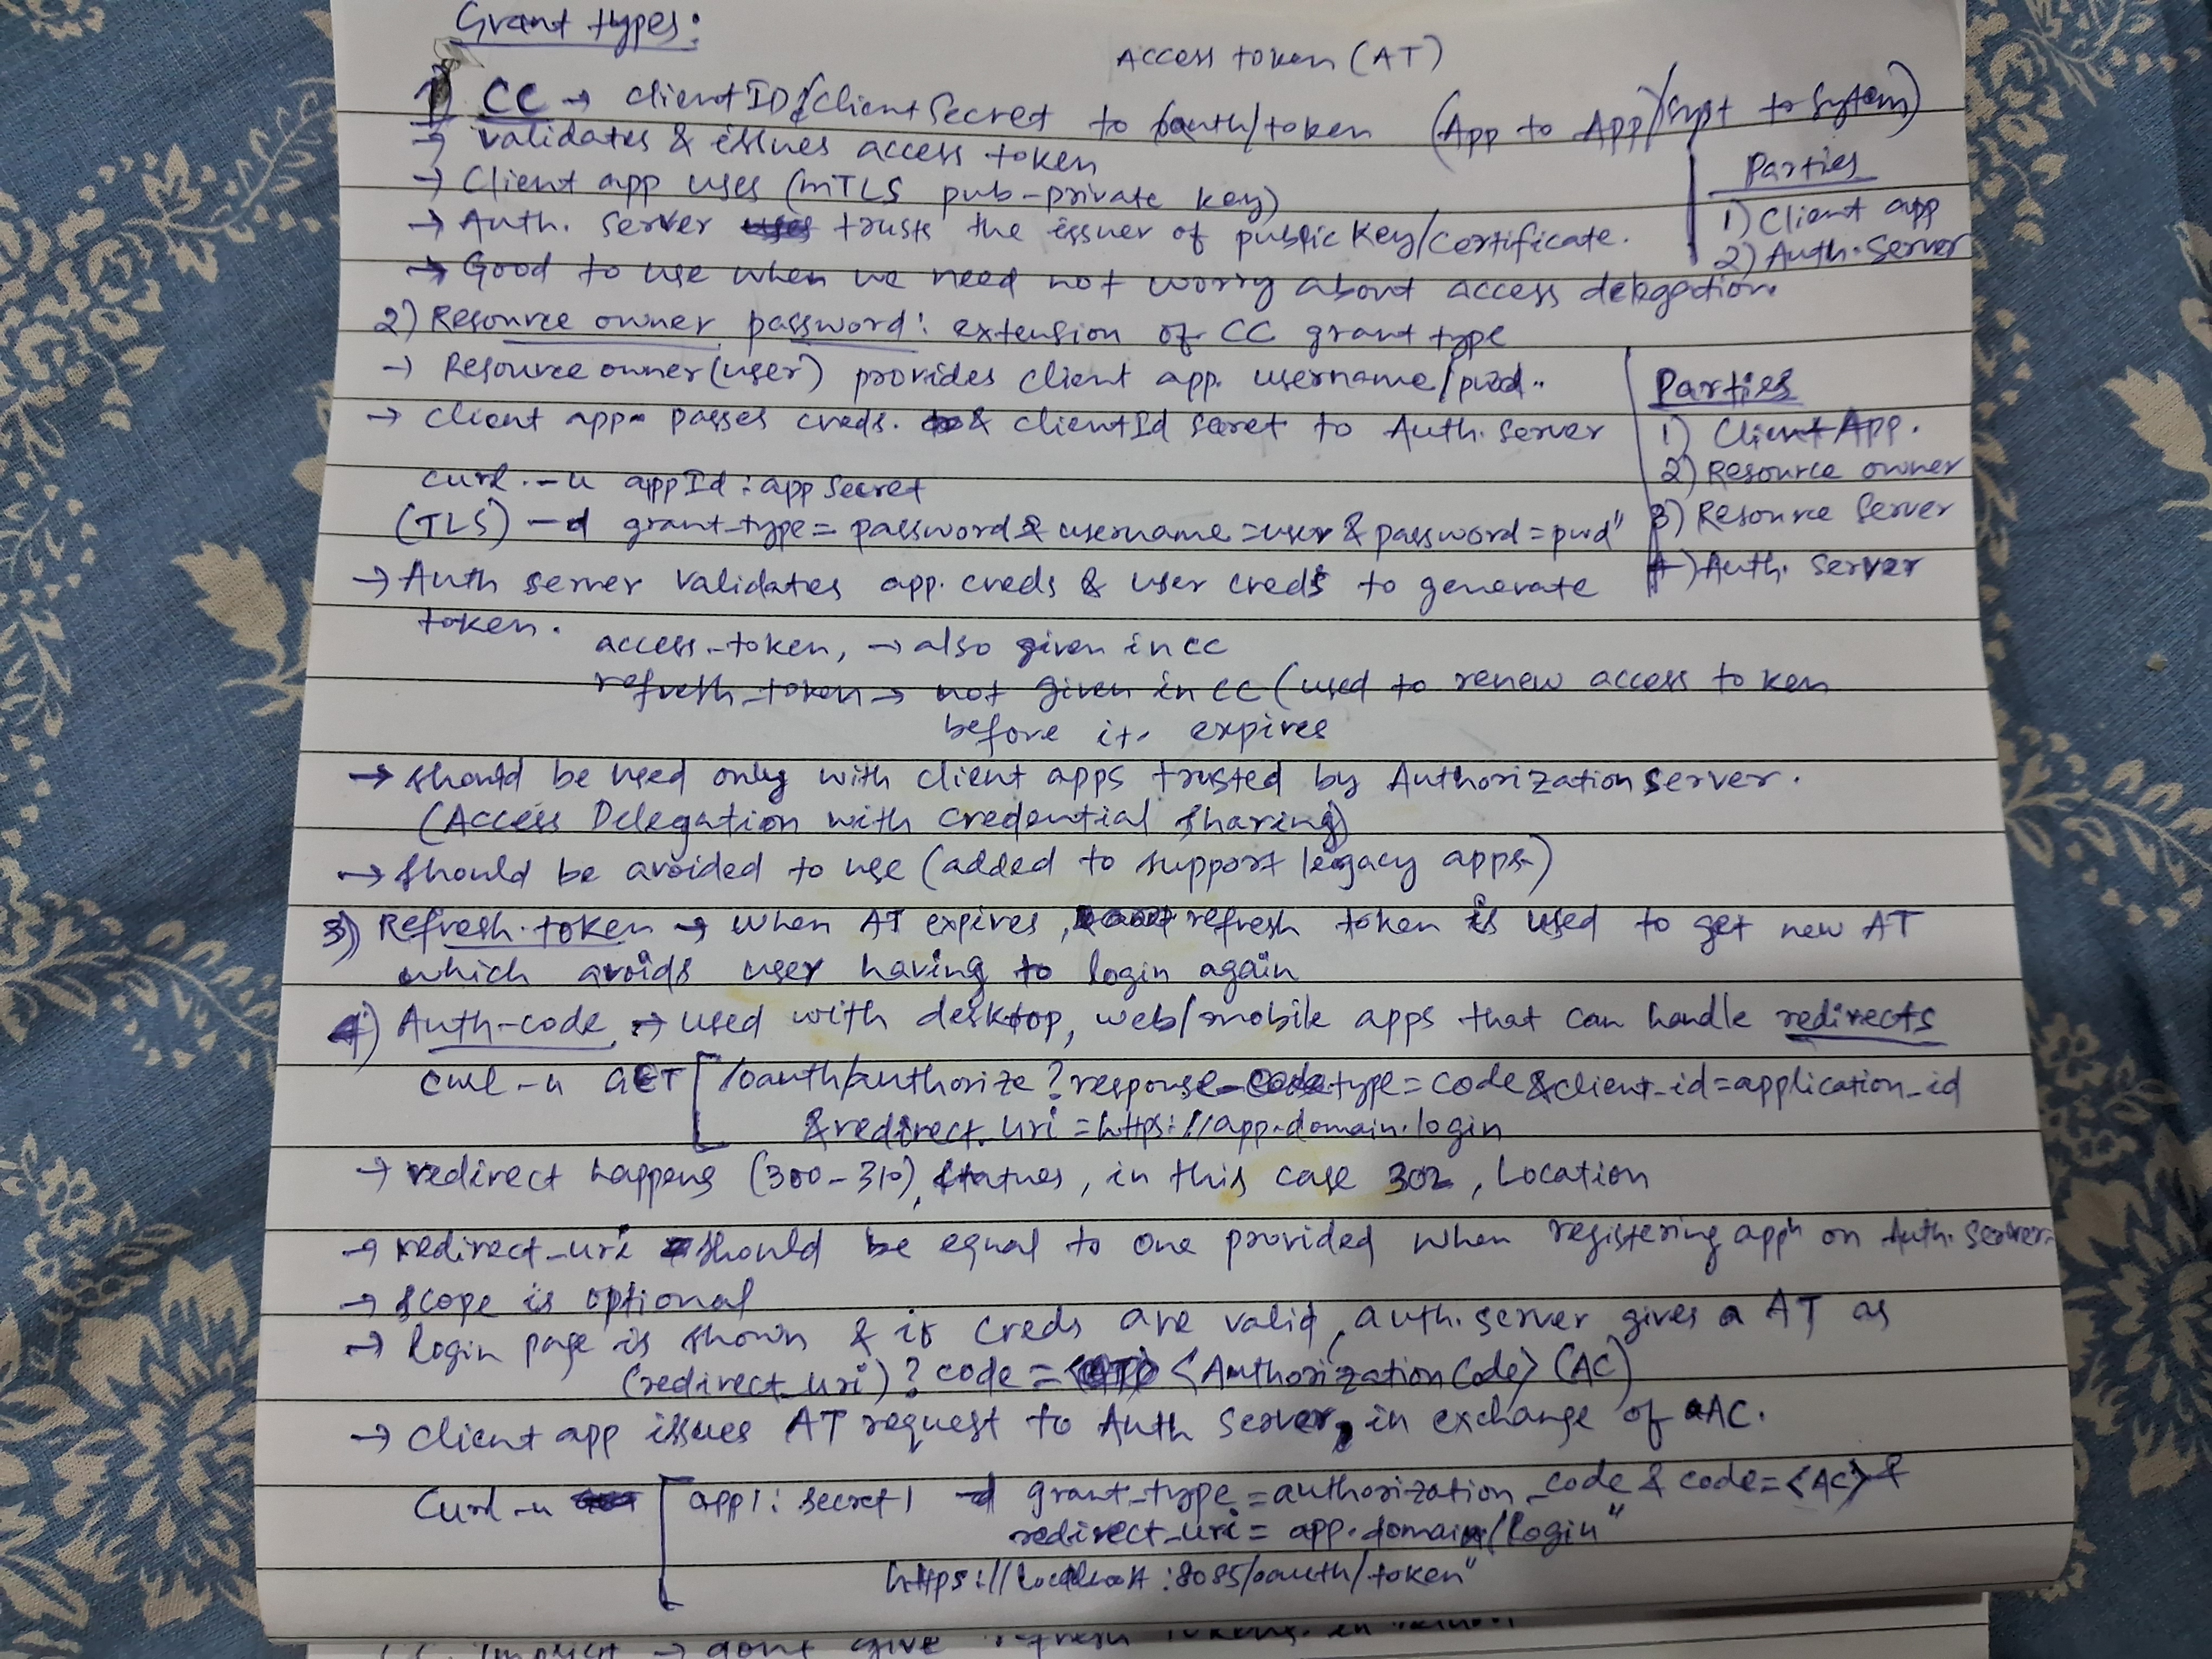 Grant types:
Access token (AT)
1) CC → clientID & Client Secret to /oauth/token (App to App / syst to system)
→ validates & issues access token
→ Client app uses (mTLS pub-private key)
→ Auth. Server trusts the issuer of public Key/Certificate.
→ Good to use when we need not worry about access delegation.
Parties
1) Client app
2) Auth. Server
2) Resource owner password: extension of CC grant type
→ Resource owner (user) provides client app. username/pwd..
→ client app. passes creds. & clientId secret to Auth. Server
curl -u appId : app Secret
(TLS) -d grant_type = password & username = user & password = pwd"
→ Auth server validates app. creds & user creds to generate
token.
access-token, → also given in CC
refresh_token → not given in CC (used to renew access token
before it. expires
Parties
1) Client App.
2) Resource owner
3) Resource Server
4) Auth. Server
→ should be used only with client apps trusted by Authorization Server.
(Access Delegation with credential sharing)
→ should be avoided to use (added to support legacy apps.)
3) Refresh.token → when AT expires, refresh token is used to get new AT
which avoids user having to login again
4) Auth-code → used with desktop, web/mobile apps that can handle redirects
curl -u GET [ /oauth/authorize ? response-type = code & client_id = application_id
& redirect_uri = https://app.domain.login
→ redirect happens (300-310), statues, in this case 302, Location
→ redirect_uri should be equal to one provided when registering appn on Auth. Server.
→ scope is optional
→ login page is shown & if creds are valid, auth. server gives a AT as
(redirect_uri) ? code = <Authorization Code> (AC)
→ client app issues AT request to Auth Server, in exchange of AC.
Curl -u [ app1 : secret1 -d grant_type = authorization_code & code = <AC> &
redirect_uri = app.domain/login"
https://localhost:8085/oauth/token"
Implicit → dont give refresh tokens. in